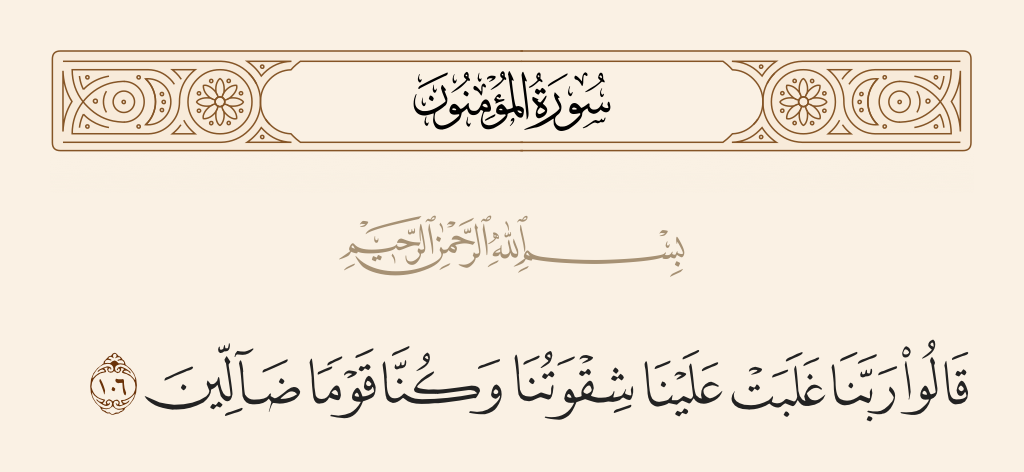 سُورَةُ المُؤْمِنُونَ
بِسْمِ ٱللَّهِ ٱلرَّحْمَٰنِ ٱلرَّحِيمِ
قَالُوا۟ رَبَّنَا غَلَبَتْ عَلَيْنَا شِقْوَتُنَا وَكُنَّا قَوْمًا ضَآلِّينَ ١٠٦